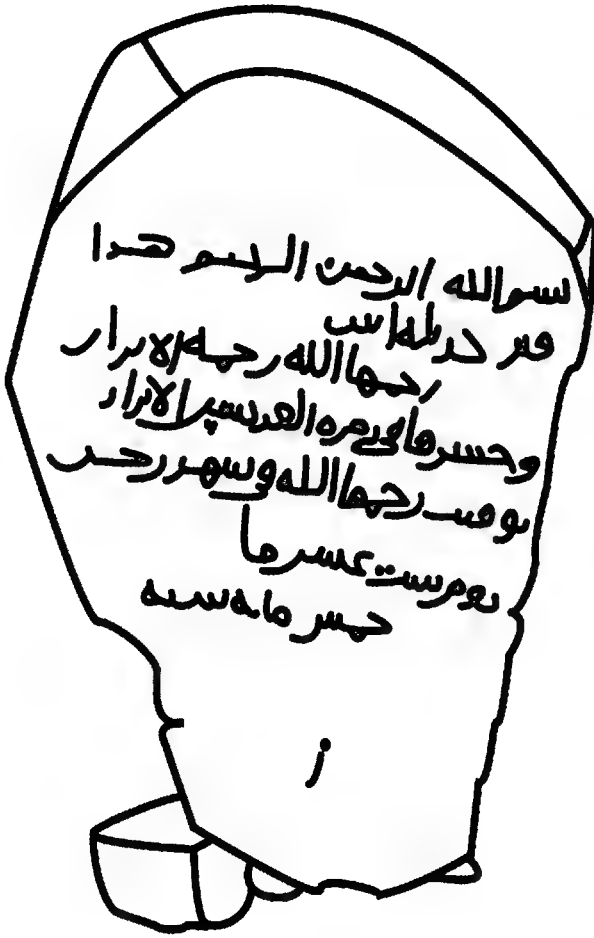 بسم الله الرحمن الرحيم هذا
قبر ابنت
رحمها الله رحمه الابرار
وحشرها في زمره القديسين الابرار
توفيت رحمها الله في شهر رجب
يوم ست عشر
خمس مايه سنه